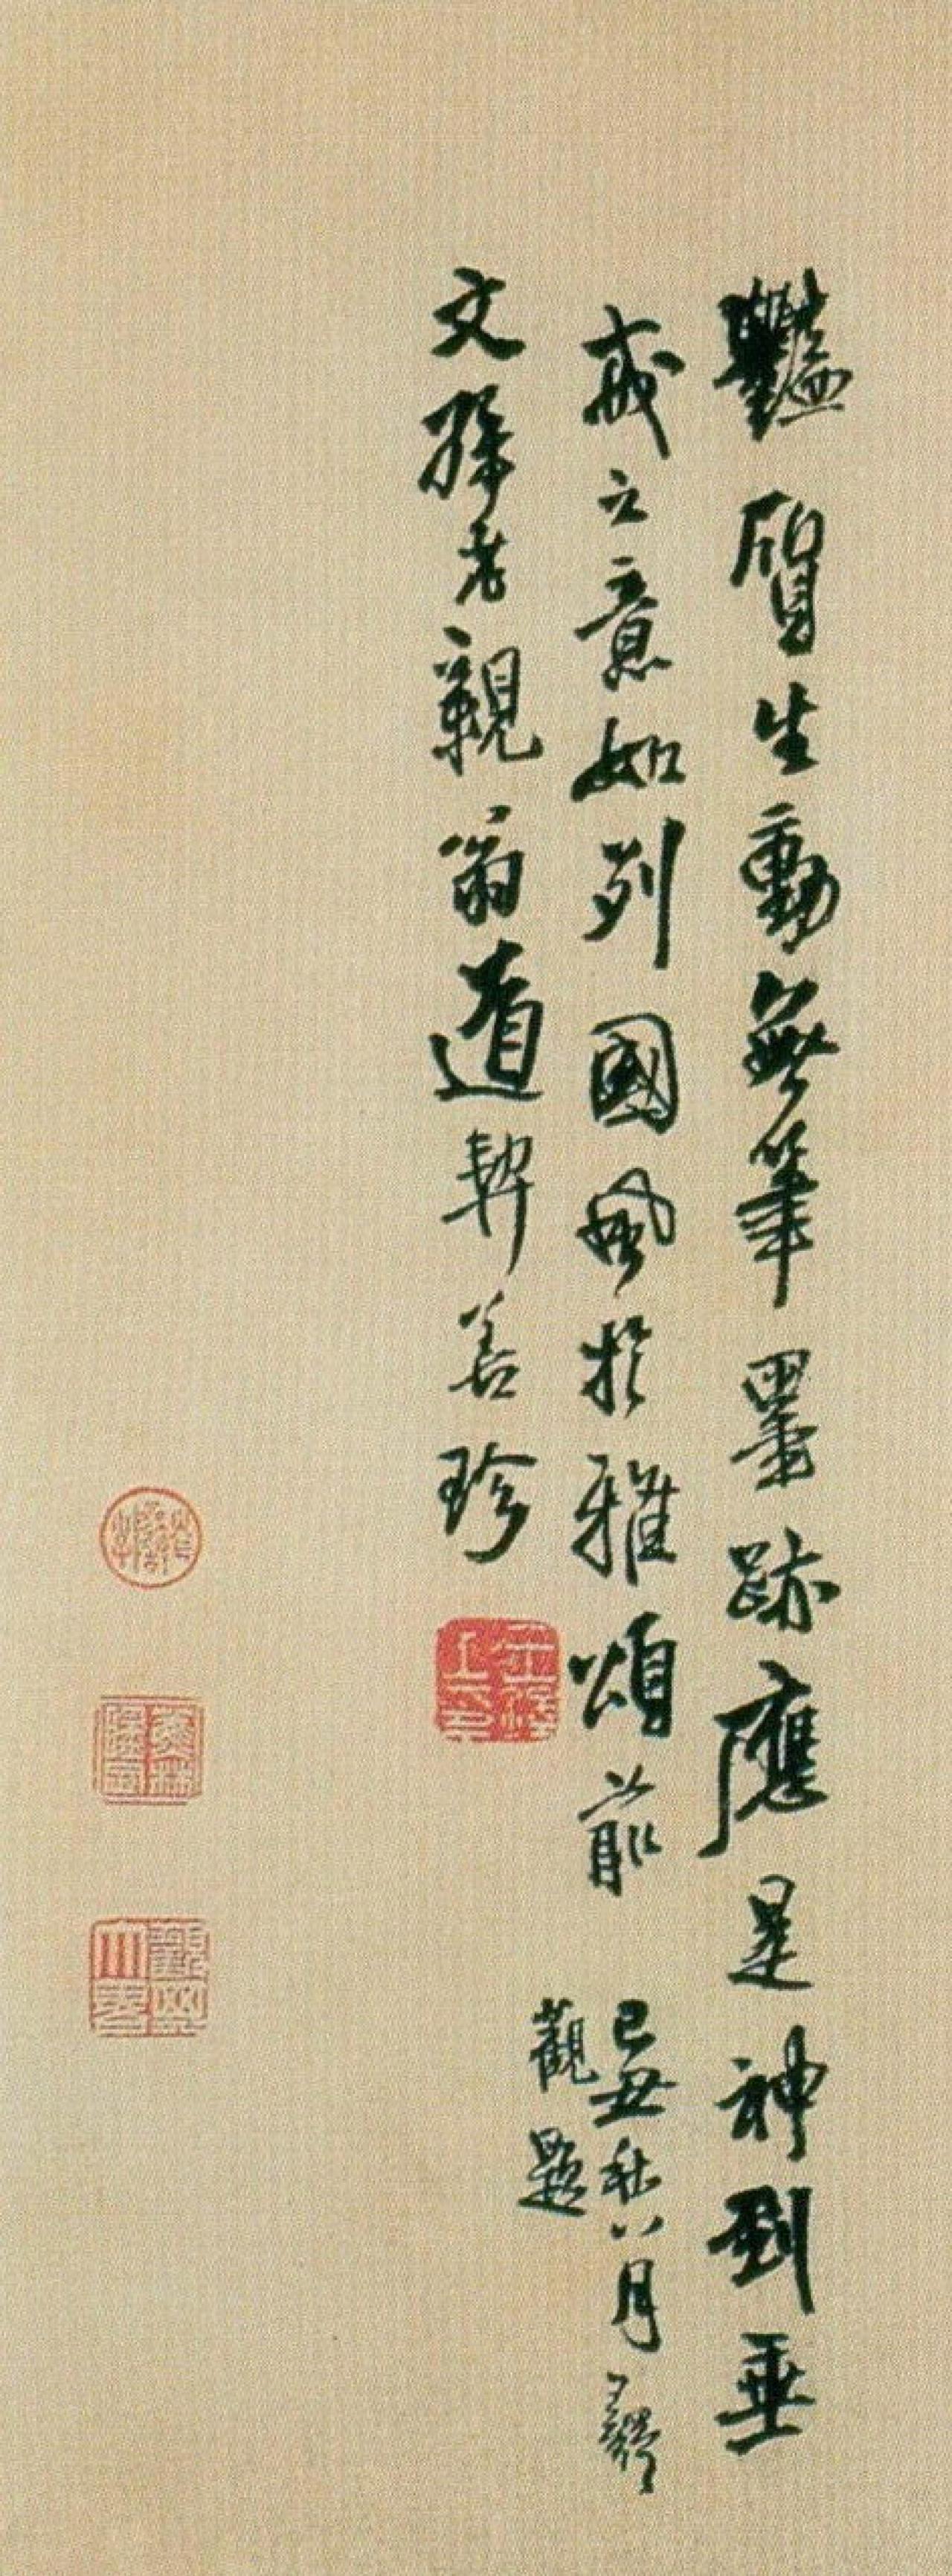 豔質生動無筆墨跡應是神到垂
戒之意如列國風於雅頌前
己丑秋八月王鐸
觀題
文孫老親翁道契善珍